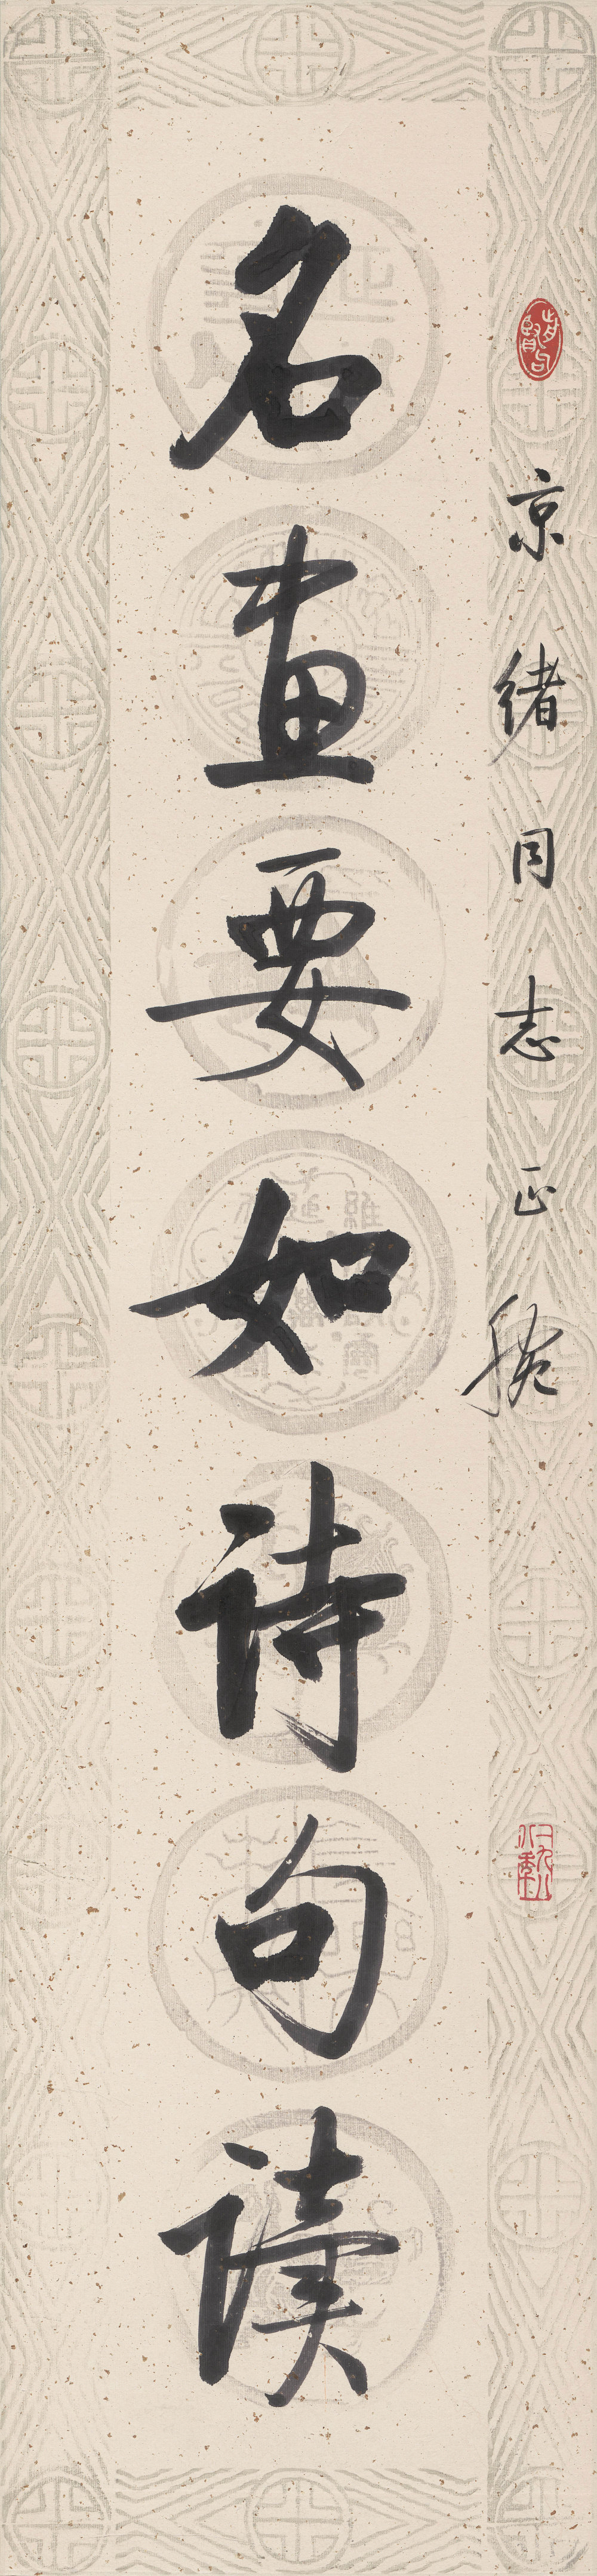 京緒同志正腕
名畫要如詩句讀